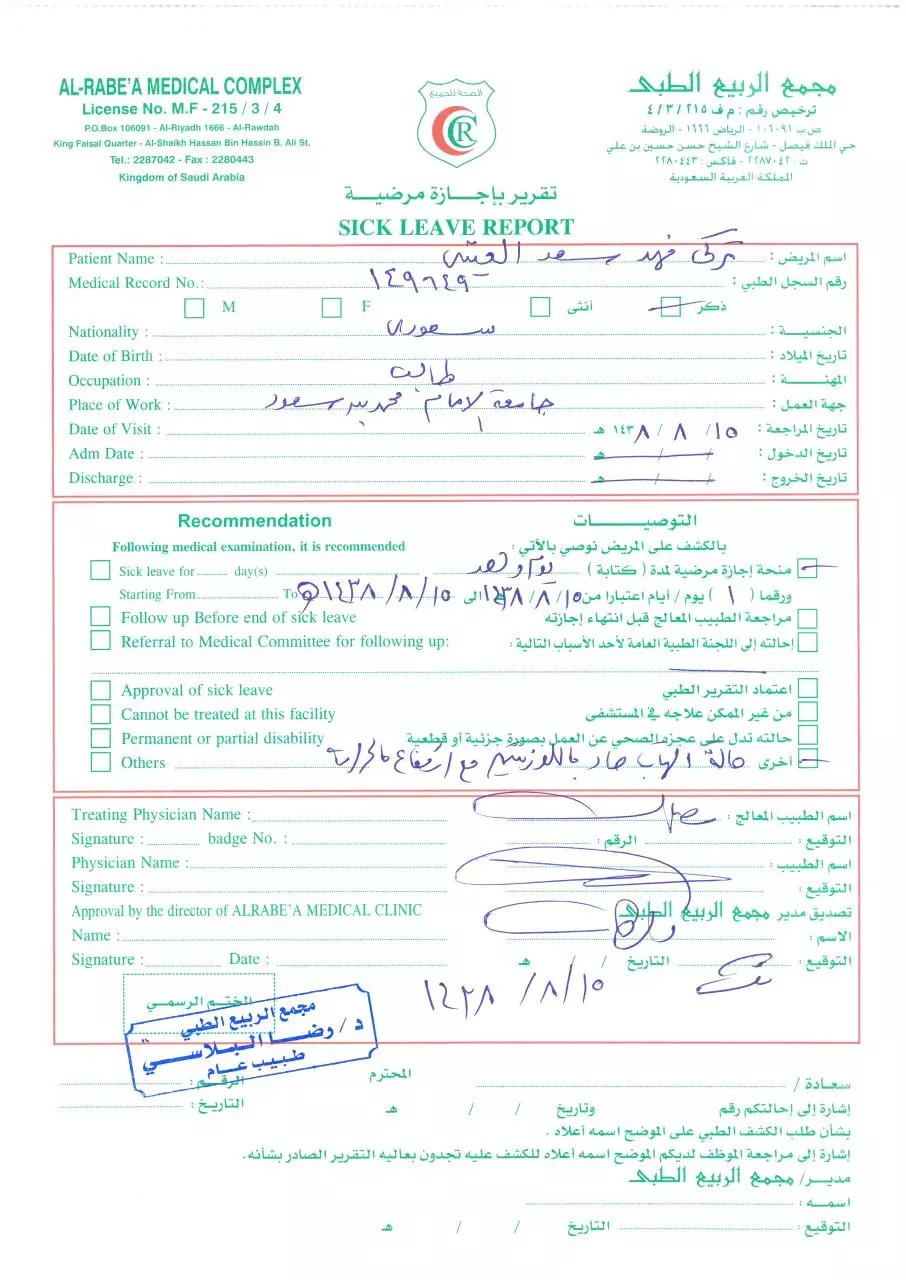 AL-RABE'A MEDICAL COMPLEX
License No. M.F - 215 / 3 / 4
P.O.Box 106091 - Al-Riyadh 1666 - Al-Rawdah
King Faisal Quarter - Al-Shaikh Hassan Bin Hassin B. Ali St.
Tel.: 2287042 - Fax : 2280443
Kingdom of Saudi Arabia
الصحة للجميع
CR
مجمع الربيع الطبي
ترخيص رقم : م ف ٢١٥ / ٣ / ٤
ص.ب ١٠٦٠٩١ - الرياض ١٦٦٦ - الروضة
حي الملك فيصل - شارع الشيخ حسن حسين بن علي
ت : ٢٢٨٧٠٤٢ - فاكس : ٢٢٨٠٤٤٣
المملكة العربية السعودية
تقرير بإجازة مرضية
SICK LEAVE REPORT
Patient Name : تركي فهد سعد اسم المريض :
Medical Record No.: ١٤٩٦٤٩ رقم السجل الطبي :
M F أنثى ذكر
Nationality : سعودي الجنسية :
Date of Birth : تاريخ الميلاد :
Occupation : طالب المهنة :
Place of Work : جامعة الامام محمد بن سعود جهة العمل :
Date of Visit : ١٥ / ٨ / ١٤٣٨ هـ تاريخ المراجعة :
Adm Date : / / هـ تاريخ الدخول :
Discharge : / / هـ تاريخ الخروج :
Recommendation التوصيات
Following medical examination, it is recommended بالكشف على المريض نوصي بالآتي :
Sick leave for day(s) منحة إجازة مرضية لمدة ( كتابة ) يوم واحد
Starting From To ورقما ( ١ ) يوم / أيام اعتبارا من ١٥ / ٨ / ١٤٣٨ الى ١٥ / ٨ / ١٤٣٨ هـ
Follow up Before end of sick leave مراجعة الطبيب المعالج قبل انتهاء إجازته
Referral to Medical Committee for following up: إحالته إلى اللجنة الطبية العامة لأحد الأسباب التالية :
Approval of sick leave اعتماد التقرير الطبي
Cannot be treated at this facility من غير الممكن علاجه في المستشفى
Permanent or partial disability حالته تدل على عجزه الصحي عن العمل بصورة جزئية أو قطعية
Others أخرى حالة التهاب حاد باللوزتين مع ارتفاع بالحرارة
Treating Physician Name : اسم الطبيب المعالج :
Signature : badge No. : الرقم : التوقيع :
Physician Name : اسم الطبيب :
Signature : التوقيع :
Approval by the director of ALRABE'A MEDICAL CLINIC تصديق مدير مجمع الربيع الطبي
Name : الاسم :
Signature : Date : هـ / / التاريخ التوقيع :
١٥ / ٨ / ١٤٣٨
الختم الرسمي
مجمع الربيع الطبي
د / وضا البلاسي
طبيب عام
سعادة / المحترم الرقم :
إشارة إلى إحالتكم رقم وتاريخ / / هـ التاريخ :
بشأن طلب الكشف الطبي على الموضح اسمه أعلاه .
إشارة إلى مراجعة الموظف لديكم الموضح اسمه أعلاه للكشف عليه تجدون بعاليه التقرير الصادر بشأنه.
مديـر/ مجمع الربيع الطبي
اسمه :
التوقيع : التاريخ / / هـ